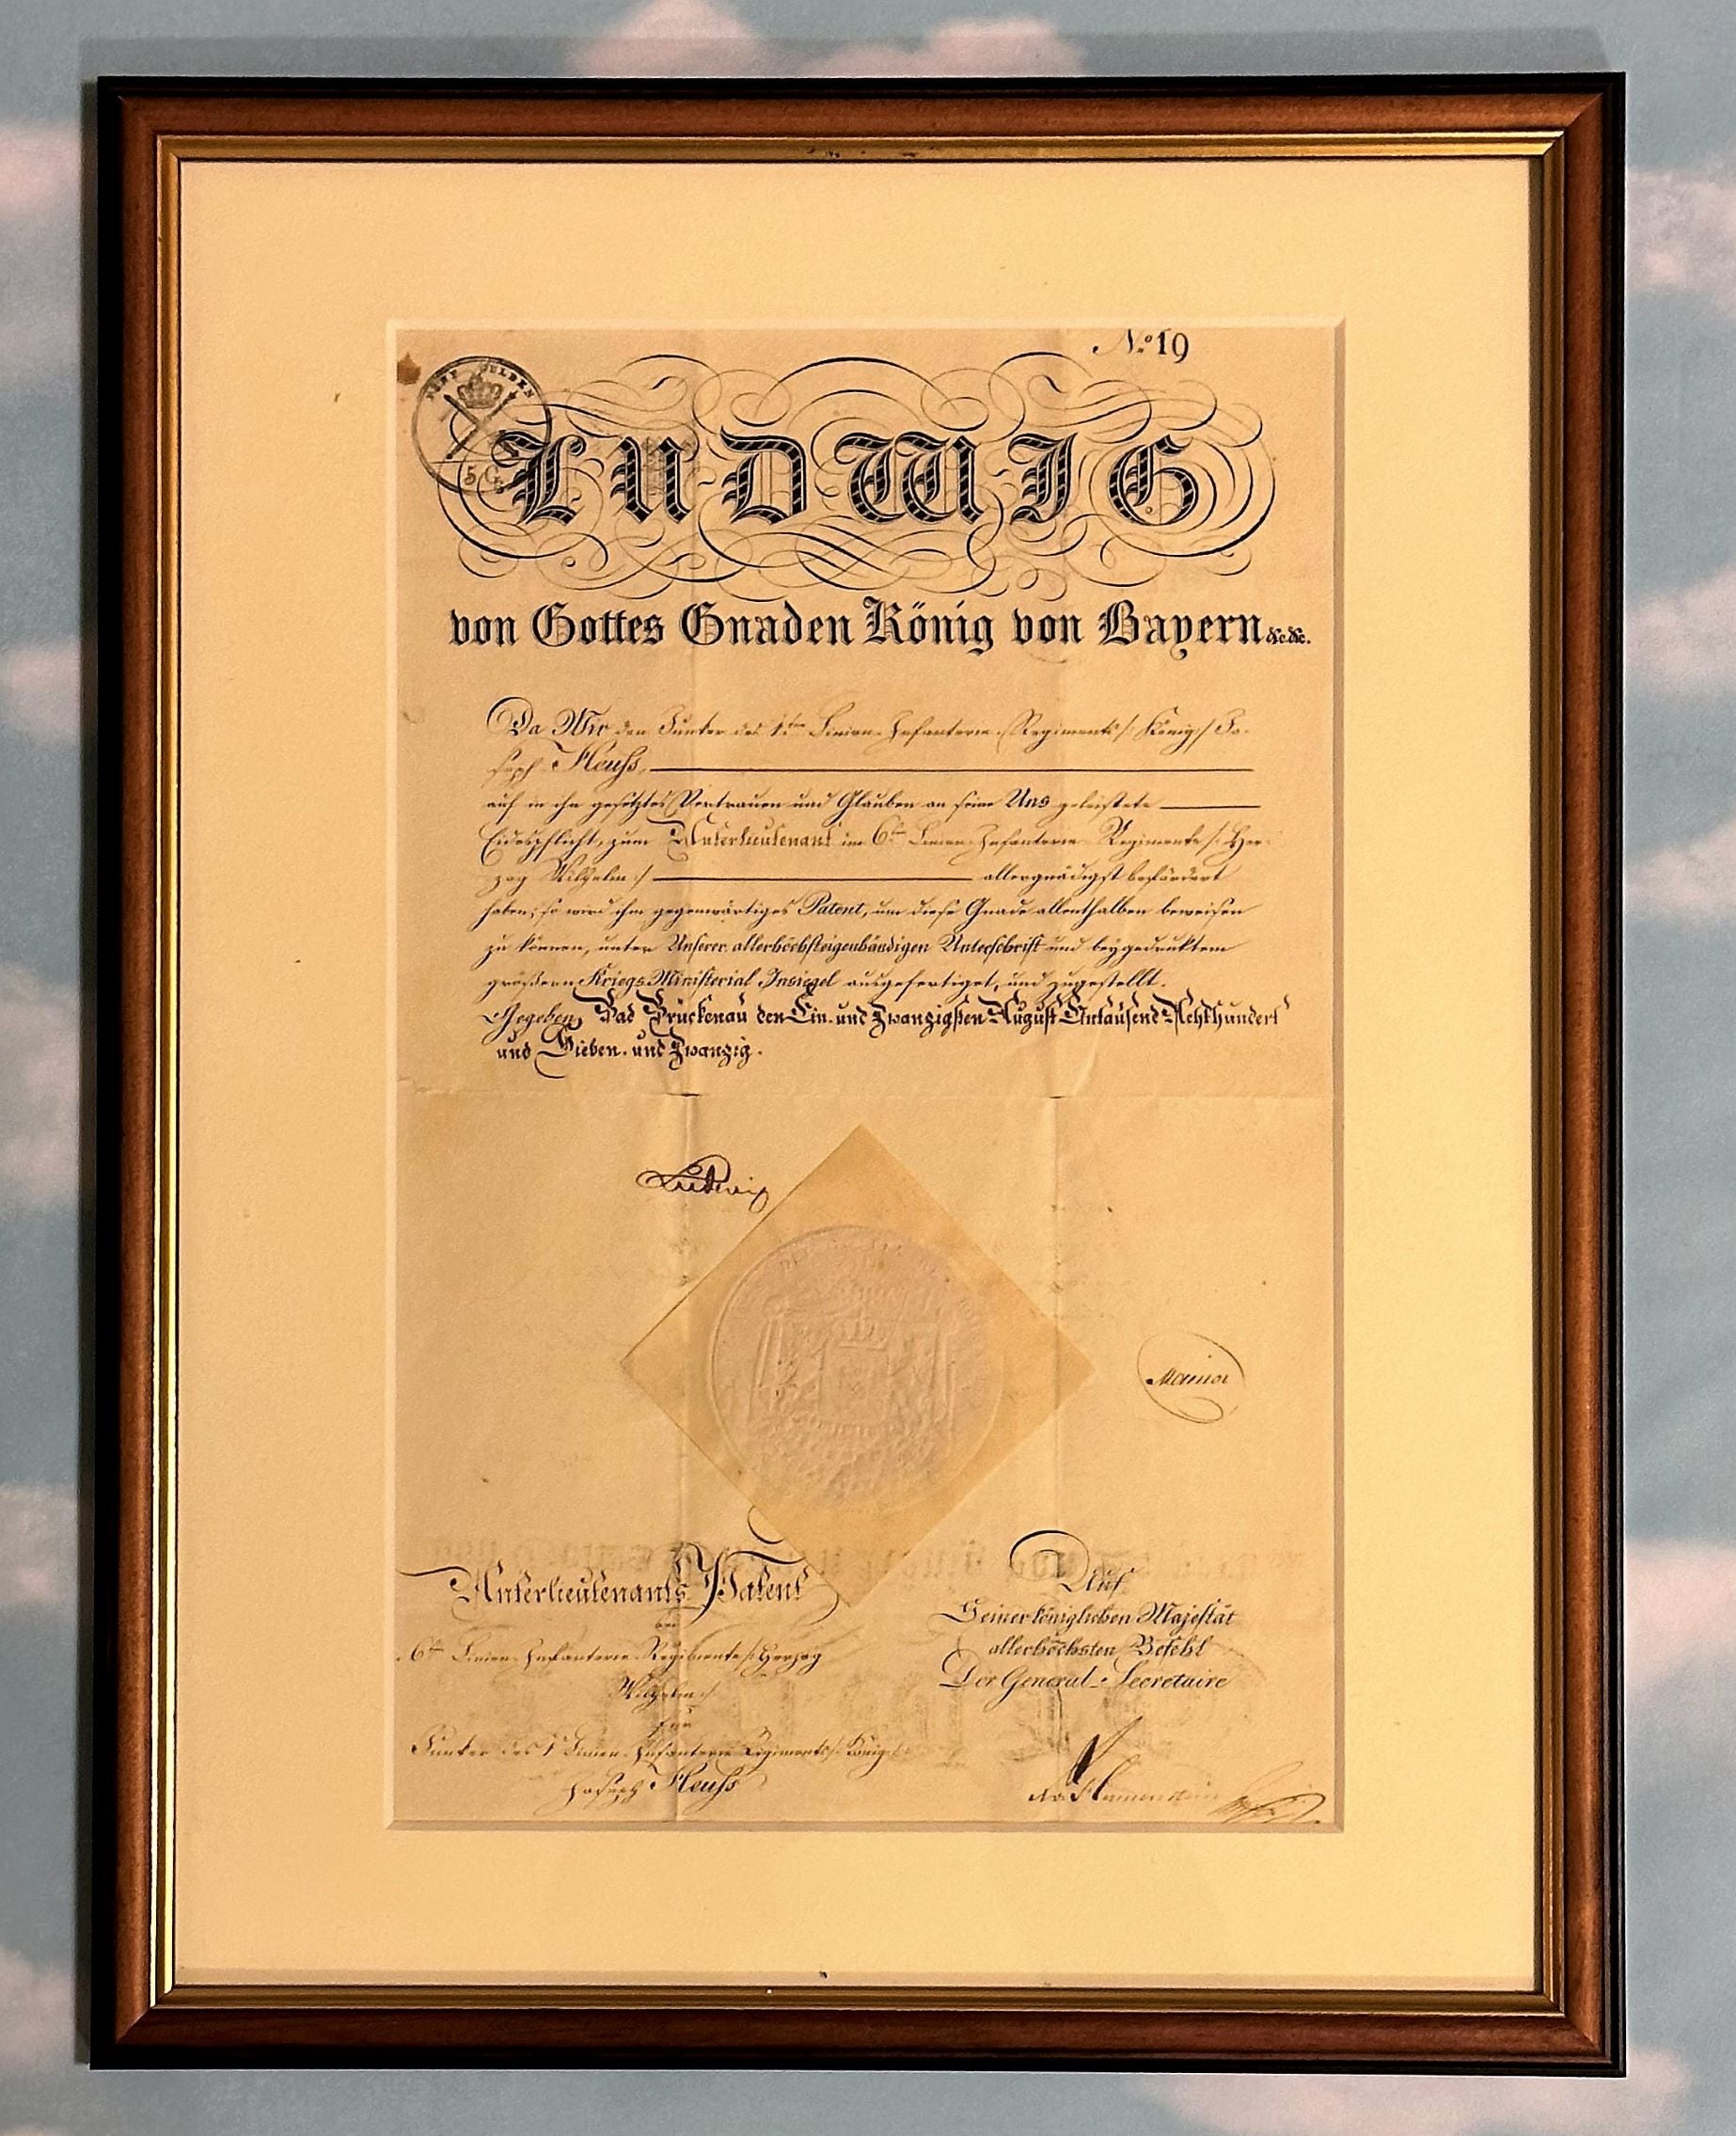 No. 19
FÜNF GULDEN
5 G
LUDWIG
von Gottes Gnaden König von Bayern &c. &c.
Da Wir den Junker des 1ten Linien-Infanterie-Regiments /: König :/ Jo-
seph Heuss,
auf in ihn gesetztes Vertrauen und Glauben an seine Uns geleistete
Eidespflicht, zum Unterlieutenant im 6ten Linien-Infanterie-Regimente /: Her-
zog Wilhelm :/ allergnädigst befördert
haben; so wird ihm gegenwärtiges Patent, um diese Gnade allenthalben beweisen
zu können, unter Unserer allerhöchsteigenhändigen Unterschrift und beygedruktem
größern Kriegs-Ministerial-Insiegel ausgefertiget, und zugestellt.
Gegeben, Bad Brückenau den Ein- und Zwanzigsten August Eintausend Achthundert
und Sieben- und Zwanzig.
Ludwig
Unterlieutenants-Patent
6ten Linien-Infanterie-Regimente /: Herzog
Wilhelm :/
für
Junker des 1ten Linien-Infanterie-Regiments /: König :/
Joseph Heuss
Auf
Seiner königlichen Majestät
allerhöchsten Befehl
Der General-Secretaire